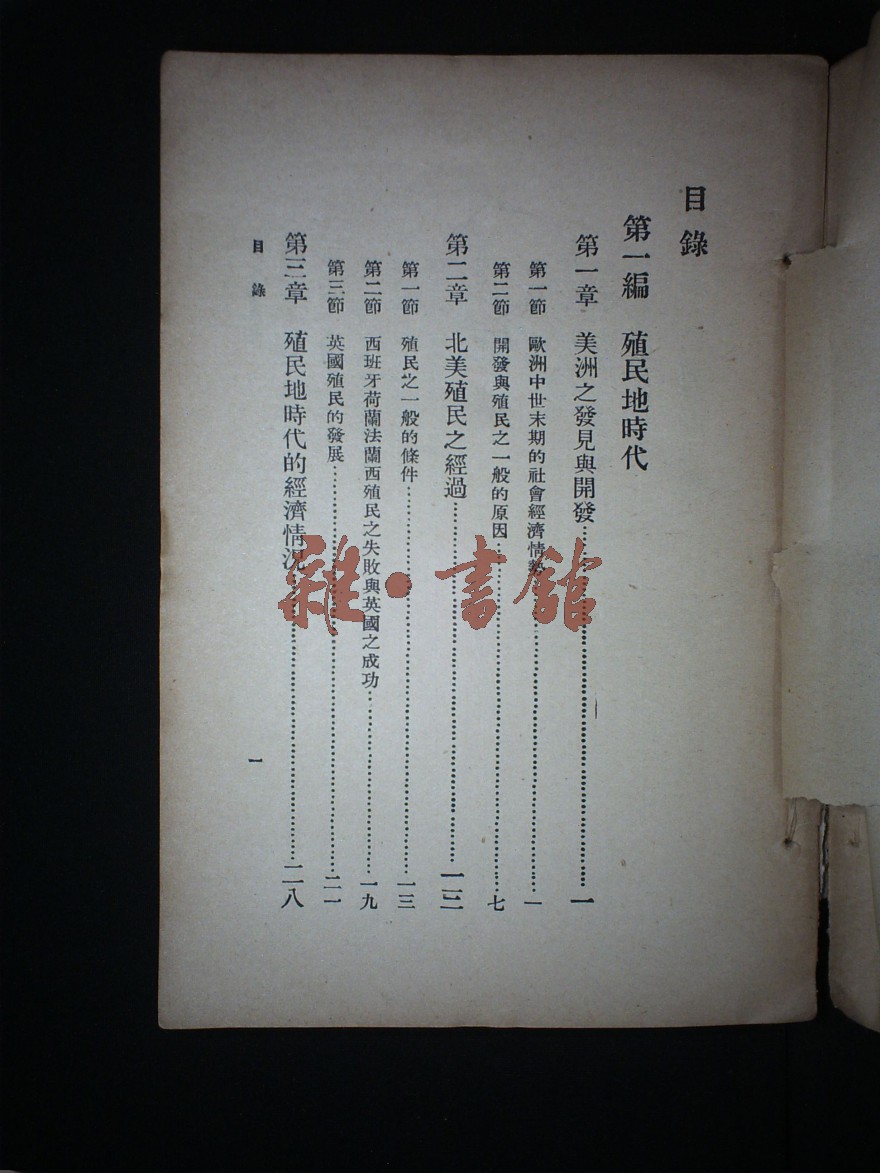 目錄
第一編 殖民地時代
第一章 美洲之發見與開發……一
第一節 歐洲中世末期的社會經濟情勢……一
第二節 開發與殖民之一般的原因……七
第二章 北美殖民之經過……一三
第一節 殖民之一般的條件……一三
第二節 西班牙荷蘭法蘭西殖民之失敗與英國之成功……一九
第三節 英國殖民的發展……二一
第三章 殖民地時代的經濟情況……二八
目錄
一
雜·書館